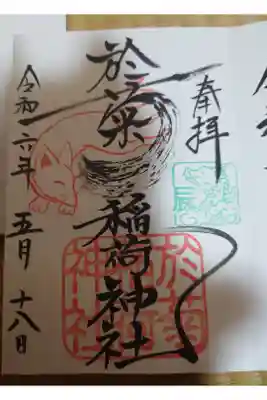 奉拝
於菊稲荷神社
令和六年 五月 十八日
於菊
神社